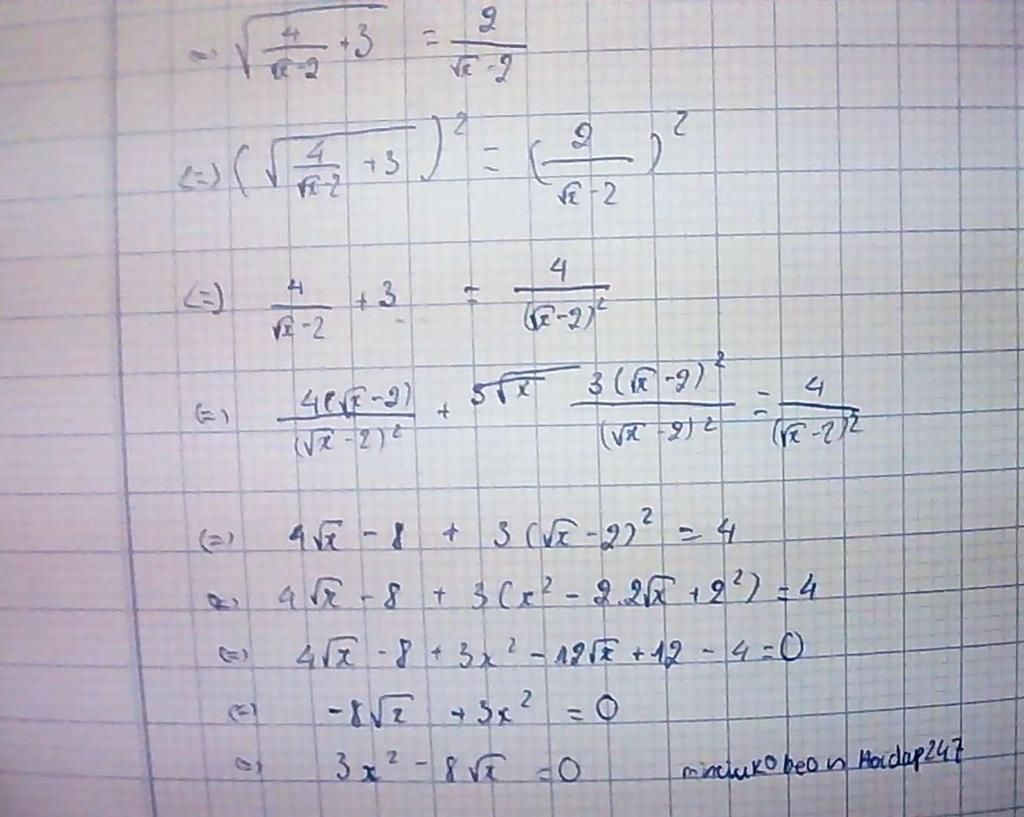 => √(4/(√x-2) + 3) = 2/(√x-2)
(=) (√(4/(√x-2) + 3))² = (2/(√x-2))²
(=) 4/(√x-2) + 3 = 4/(√x-2)²
(=) 4(√x-2)/(√x-2)² + 3(√x-2)²/(√x-2)² = 4/(√x-2)²
(=) 4√x - 8 + 3(√x-2)² = 4
(=) 4√x - 8 + 3(x² - 2.2√x + 2²) = 4
(=) 4√x - 8 + 3x² - 12√x + 12 - 4 = 0
(=) -8√x + 3x² = 0
(=) 3x² - 8√x = 0 Hoidap247